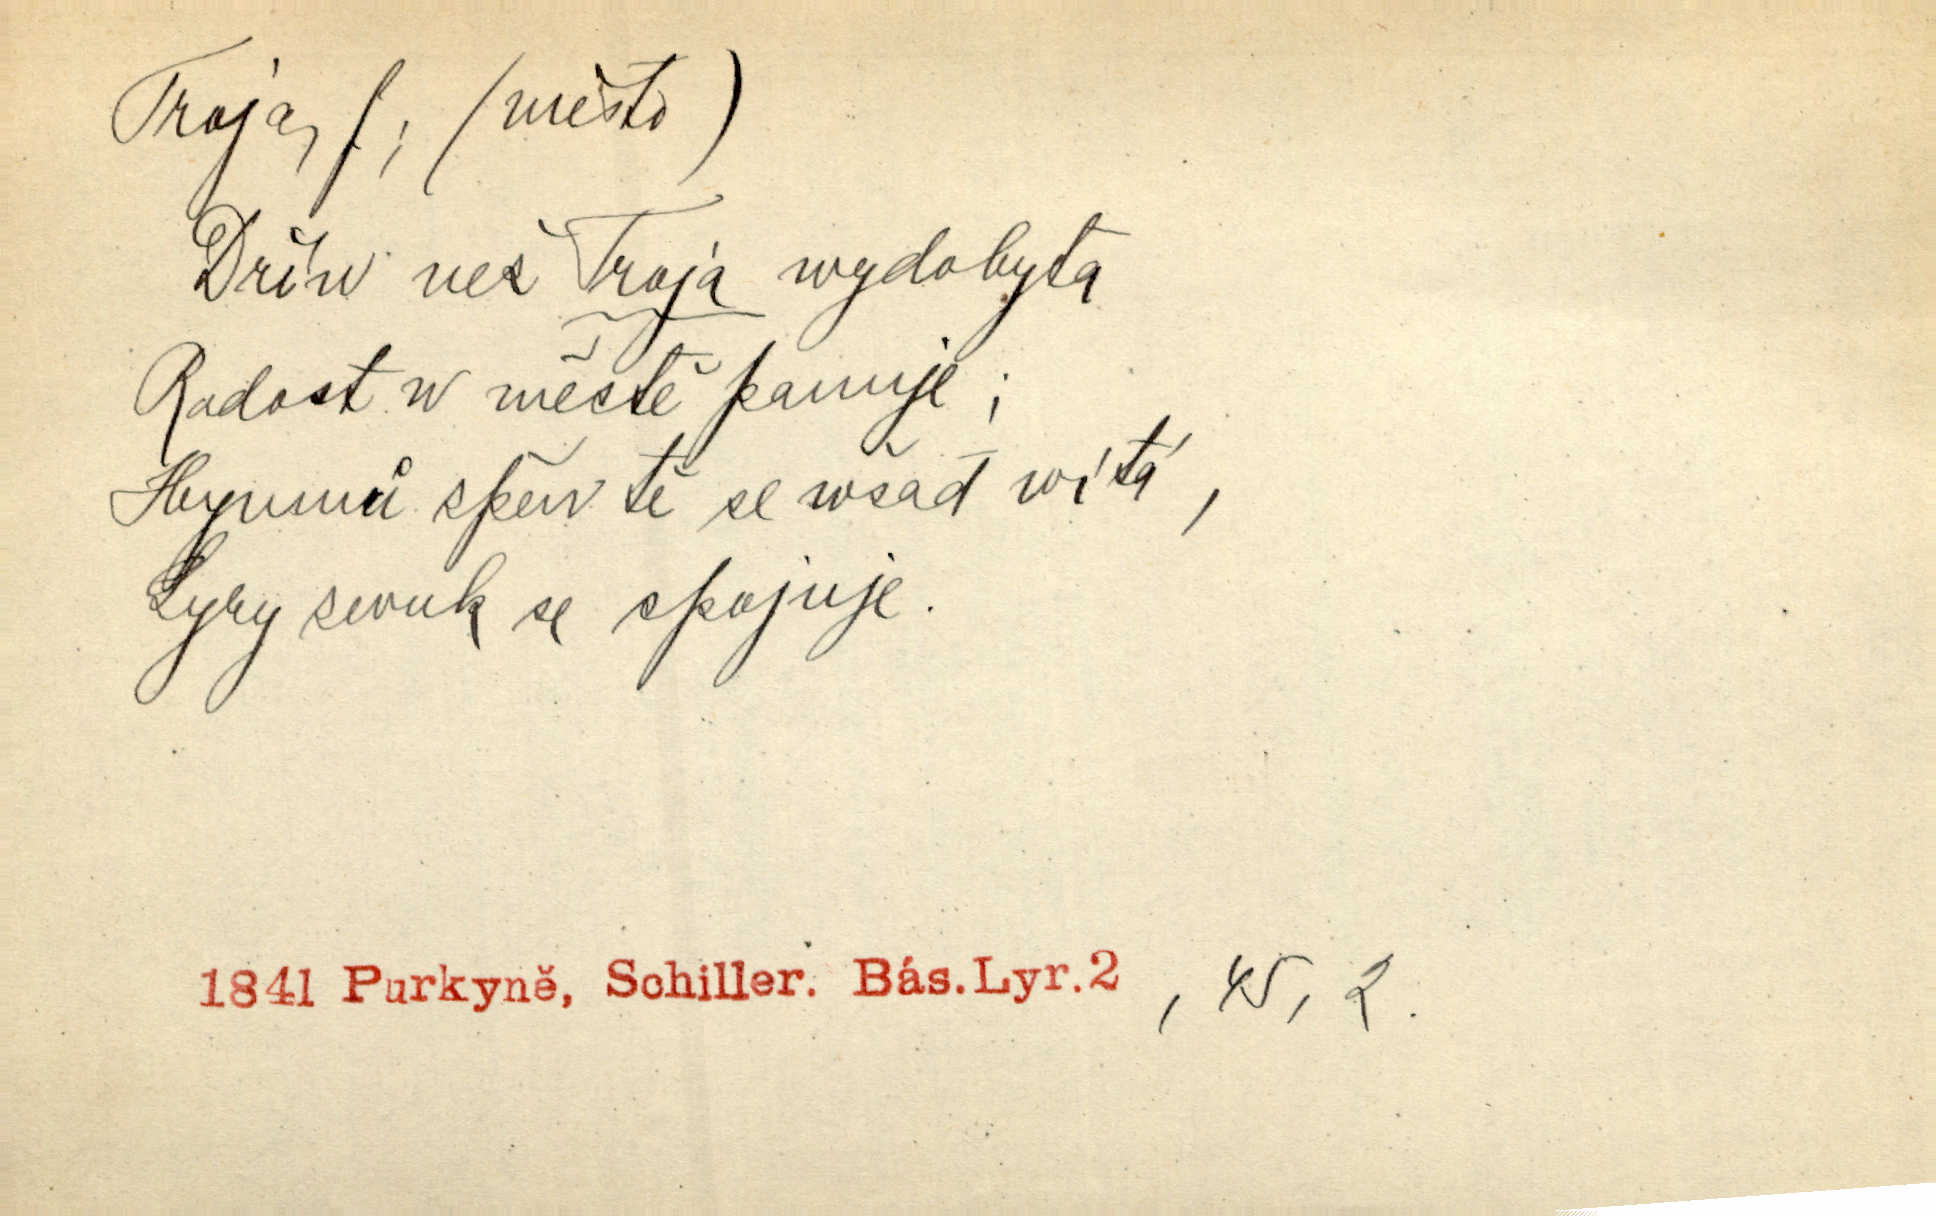 Troja, f; (město)
Dřiw než Troja wydobyta
Radost w městě panuje;
Hymnů spěw tě se wšad wítá,
Lyry zwuk se spojuje.
1841 Purkyně, Schiller. Bás. Lyr. 2, 45, 2.